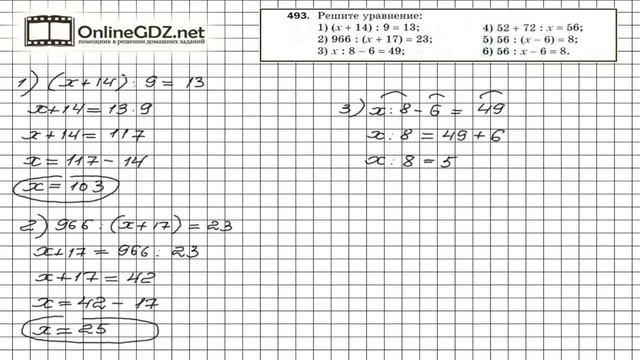 OnlineGDZ.net
ПОМОЩНИК В РЕШЕНИИ ДОМАШНИХ ЗАДАНИЙ
493. Решите уравнение:
1) (x + 14) : 9 = 13;
2) 966 : (x + 17) = 23;
3) x : 8 − 6 = 49;
4) 52 + 72 : x = 56;
5) 56 : (x − 6) = 8;
6) 56 : x − 6 = 8.
1) (x+14) : 9 = 13
x+14 = 13·9
x+14 = 117
x = 117 − 14
x = 103
2) 966 : (x+17) = 23
x+17 = 966 : 23
x+17 = 42
x = 42 − 17
x = 25
3) x : 8 − 6 = 49
x : 8 = 49 + 6
x : 8 = 5